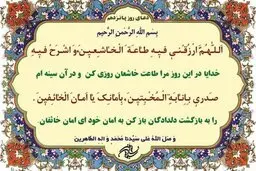 دعای روز پانزدهم
بِسْمِ اللَّهِ الرَّحْمنِ الرَّحِیمِ
اَللّهُمَّ ارْزُقْنی فیهِ طاعَةَ الْخاشِعینَ وَ اشْرَحْ فیهِ
خدایا در این روز مرا طاعت خاشعان روزی کن و در آن سینه ام
صَدری بِاِنابَةِ الْمُخْبِتینَ بِاَمانِکَ یا اَمانَ الْخائِفینَ
را به بازگشت دلدادگان باز کن به امان خود ای امان خائفان
وَ صَلَّ اللهُ عَلی سَیِّدِنا مُحَمَّدٍ وَ الِهِ الطّاهِرینَ